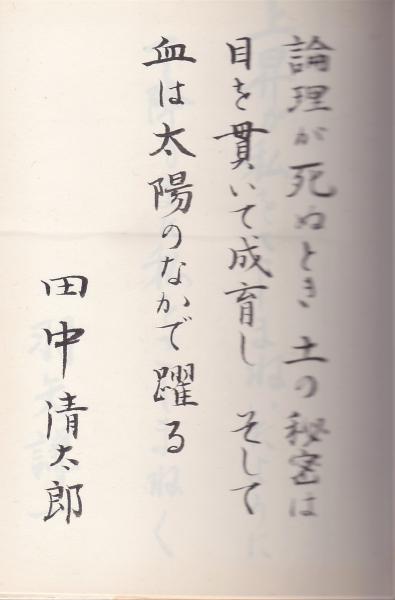 論理が死ぬとき 土の秘密は
目を貫いて成育し そして
血は太陽のなかで躍る
田中清太郎